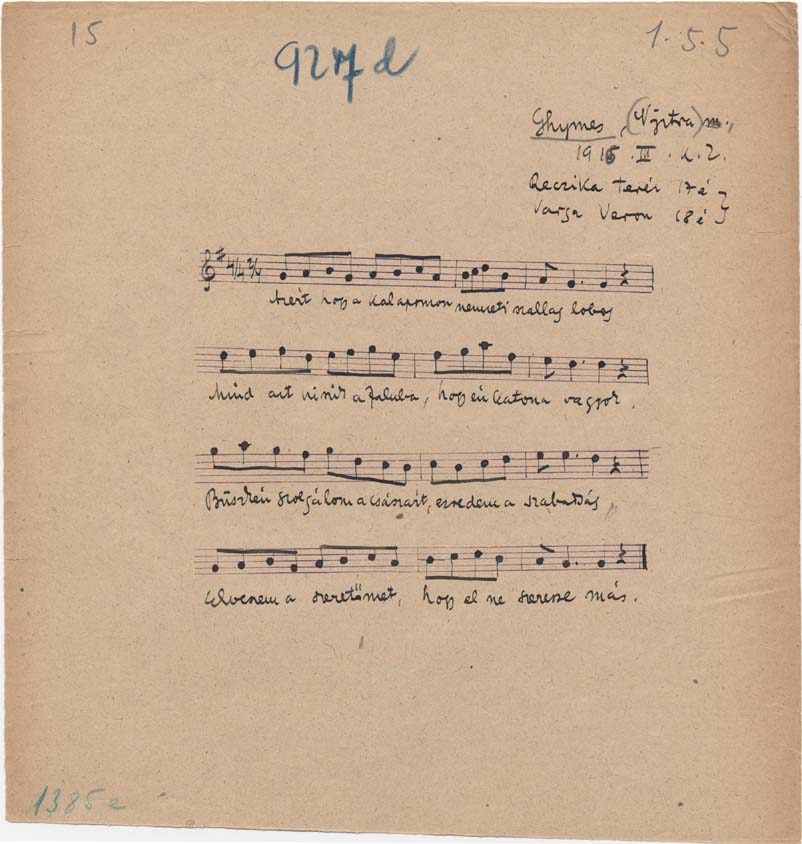 15
1.5.5
927 d
Ghymes, (Nyitra) m.
1915. III. K. Z.
Reczika Teréz 17 é
Varga Veron 18 é
4/4 2/4
Azért hogy a kalapomon nemzeti szallag lobog
Mind azt hiszik a faluba, hogy én katona vagyok.
Büszkén szolgálom a császárt, ezredem a
Elveszem a szeretőmet, hogy el ne szeresse más.
1385 e